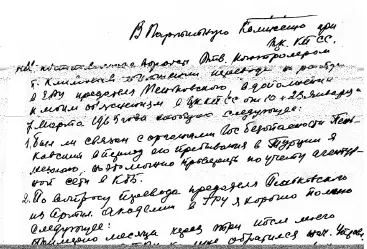 В Партийную Комиссию при
ЦК КПСС.
контролером
т. переводе на работу
в ГРУ предателя Пеньковского в дополнение
к моим объяснениям в ЦК КПСС от 10 и 23 января и
7 марта 1965 года сообщаю следующее:
1. Был ли связан с органами Гос безопасности Пень-
ковский в период его пребывания в Турции я
не знаю, возможно проверить по учету агентур-
ной сети в КГБ.
2. По вопросу перевода предателя Пеньковского
из Артил. академии в ГРУ я хорошо помню
следующее:
Примерно месяца через три после моего
обратился нач.